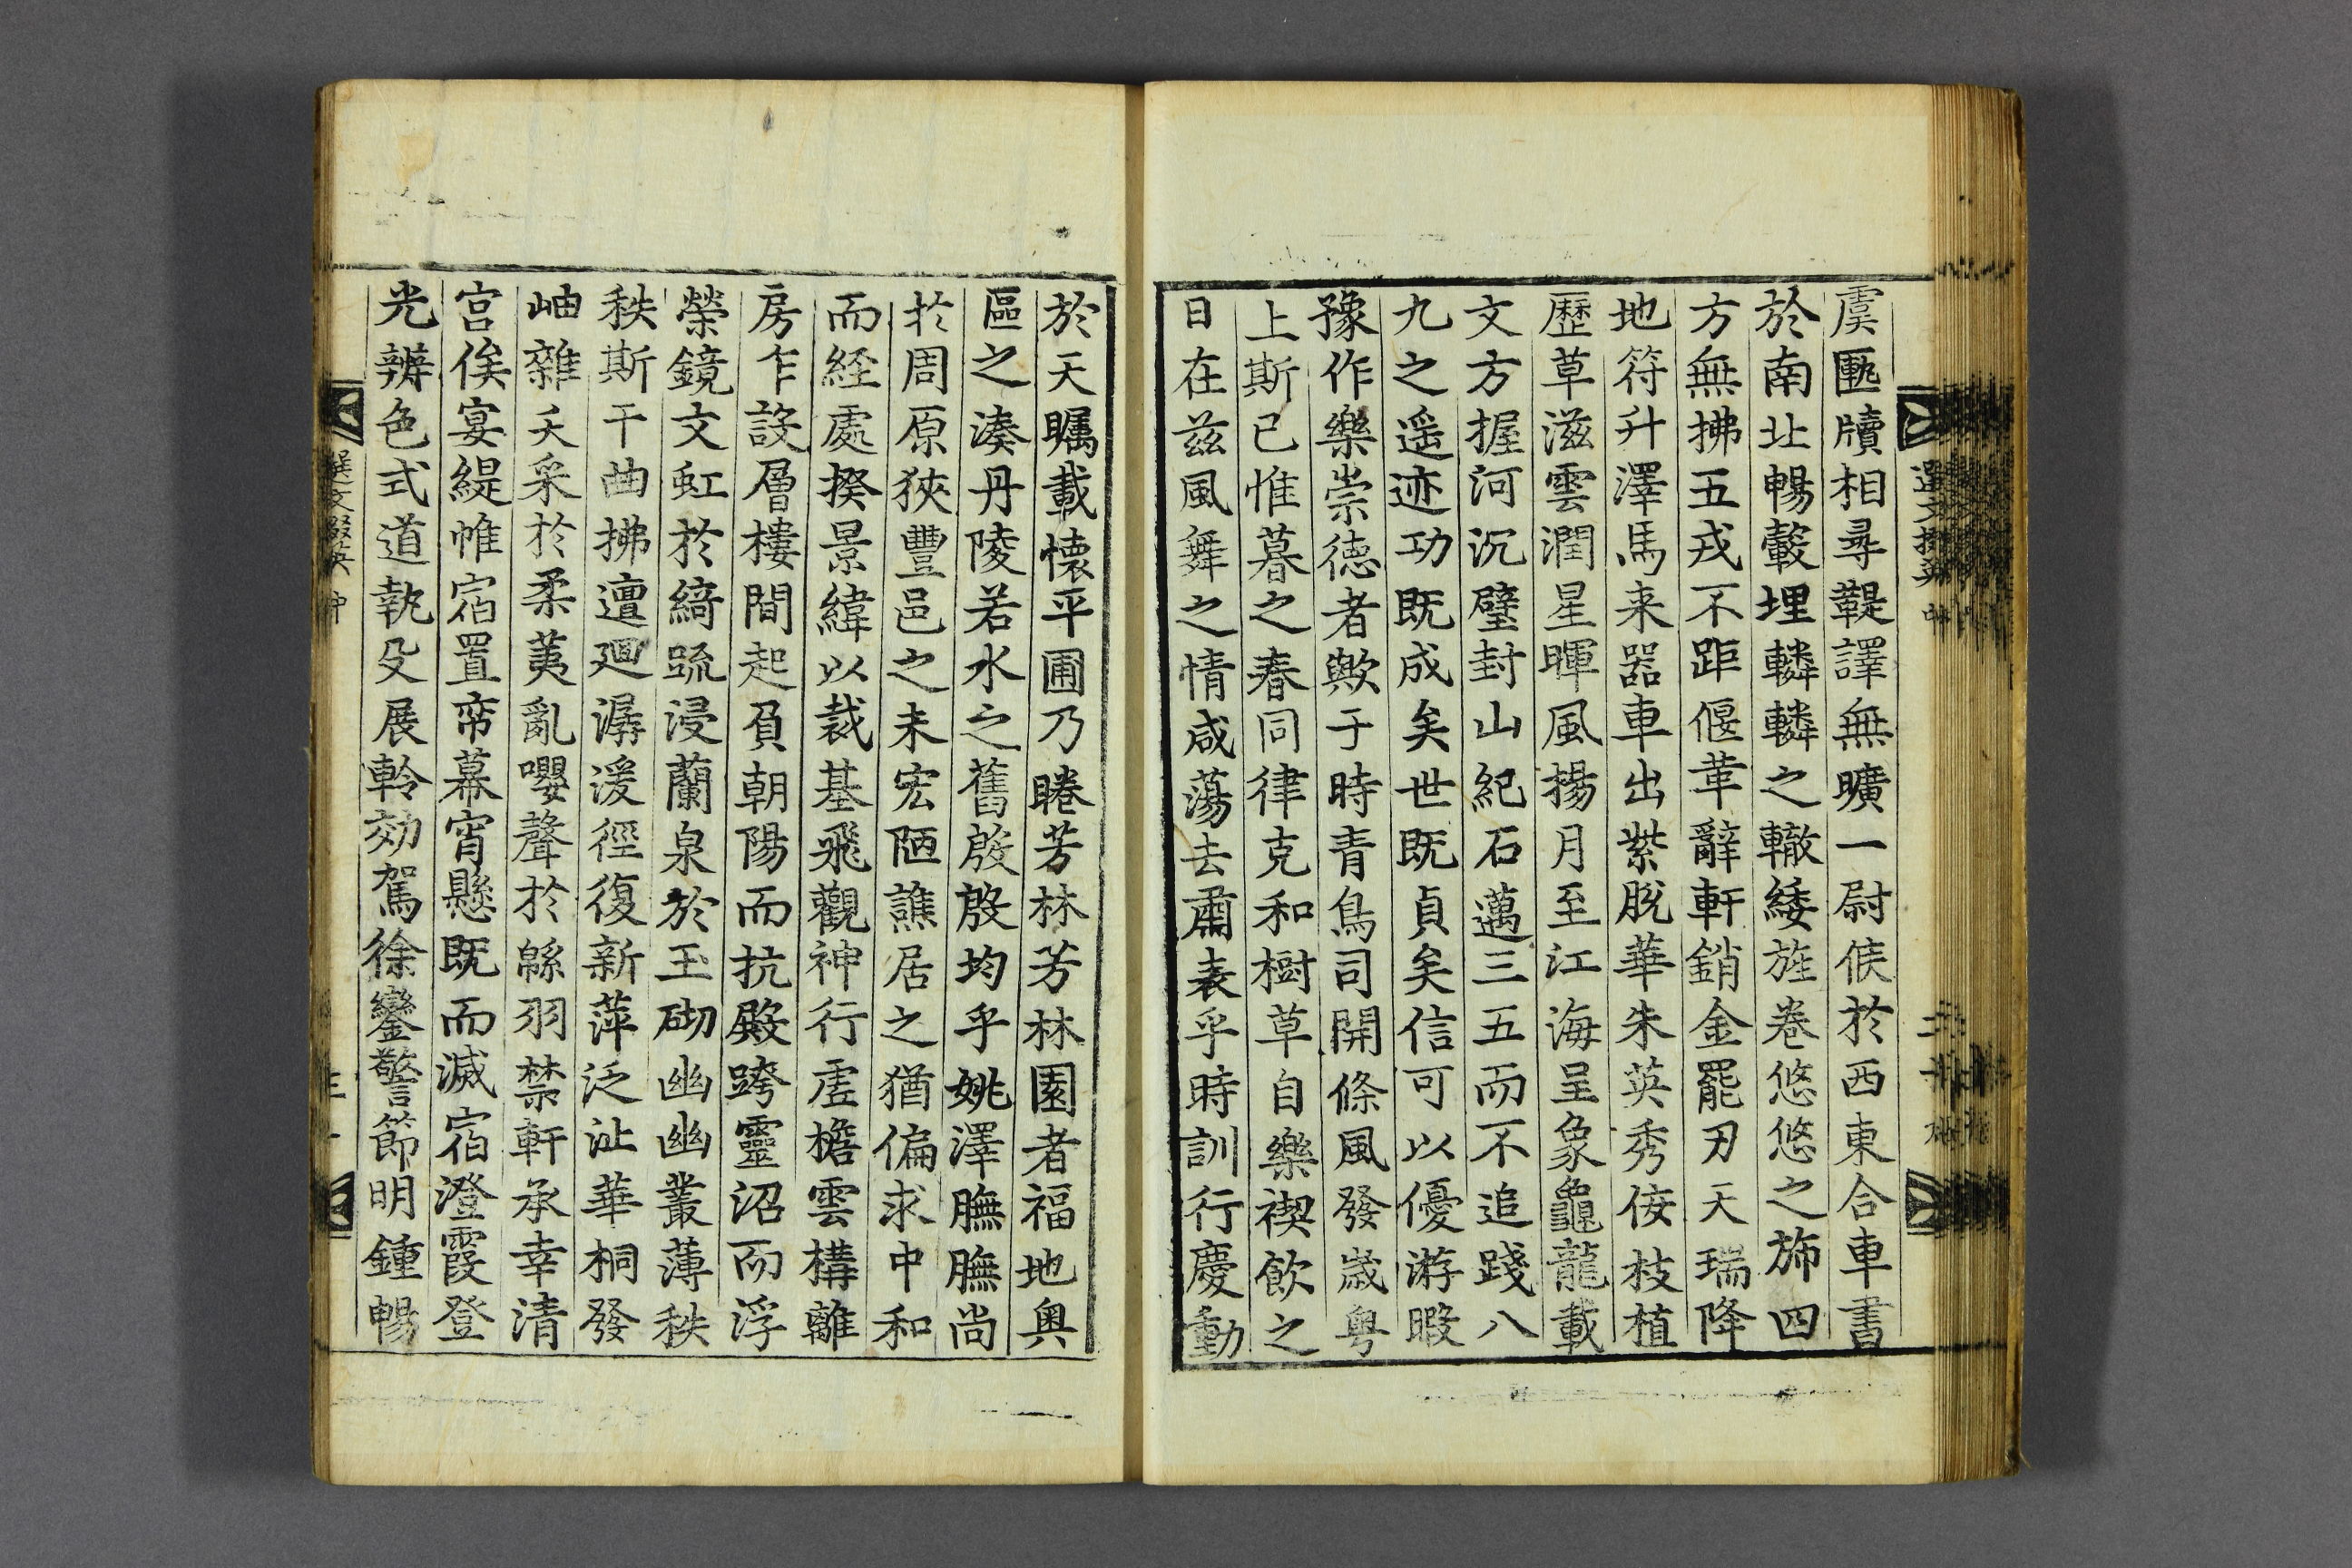 虞匭牘相尋鞮譯無曠一尉候於西東合車書
於南北暢轂埋轔轔之轍緌旌卷悠悠之斾四
方無拂五戎不距偃革辭軒銷金罷刃天瑞降
地符升澤馬来器車出紫脫華朱英秀佞枝植
歷草滋雲潤星暉風揚月至江海呈象龜龍載
文方握河沉璧封山紀石邁三五而不追踐八
九之遥迹功既成矣世既貞矣信可以優游暇
豫作樂崇德者歟于時青鳥司開條風發歲粤
上斯巳惟暮之春同律克和樹草自樂禊飲之
日在茲風舞之情咸蕩去肅表乎時訓行慶動
於天矚載懷平圃乃睠芳林芳林園者福地奧
區之湊丹陵若水之舊殷殷均乎姚澤膴膴尚
扵周原狹豐邑之未宏陋譙居之猶偏求中和
而經處揆景緯以裁基飛觀神行虛檐雲構離
房乍設層樓間起負朝陽而抗殿跨靈沼而浮
榮鏡文虹於綺疏浸蘭泉於玉砌幽幽叢薄秩
秩斯干曲拂邅迴潺湲徑復新萍泛沚華桐發
岫雜夭采於柔荑亂嚶聲於緜羽禁軒承幸清
宮俟宴緹帷宿置帟幕宵懸既而滅宿澄霞登
光辨色式道執殳展軨効駕徐鑾警節明鍾暢
選文掇英 中